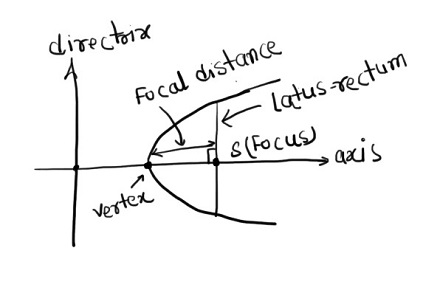 directrix
Focal distance
Latus-rectum
S(Focus)
axis
vertex